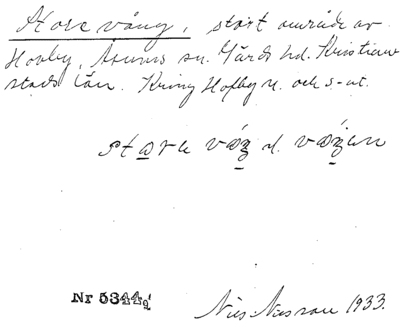 Store vång, stort område av
Hovby, Åsums sn. Gärds hd. Kristian-
stads län. Kring Hofby n. och s-ut.
stora våŋ l. våŋen
Nr 5344
Nils Nessau 1933.